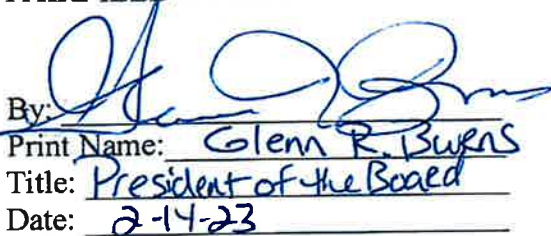 By:
Print Name: Glenn R. Burns
Title: President of the Board
Date: 2-14-23